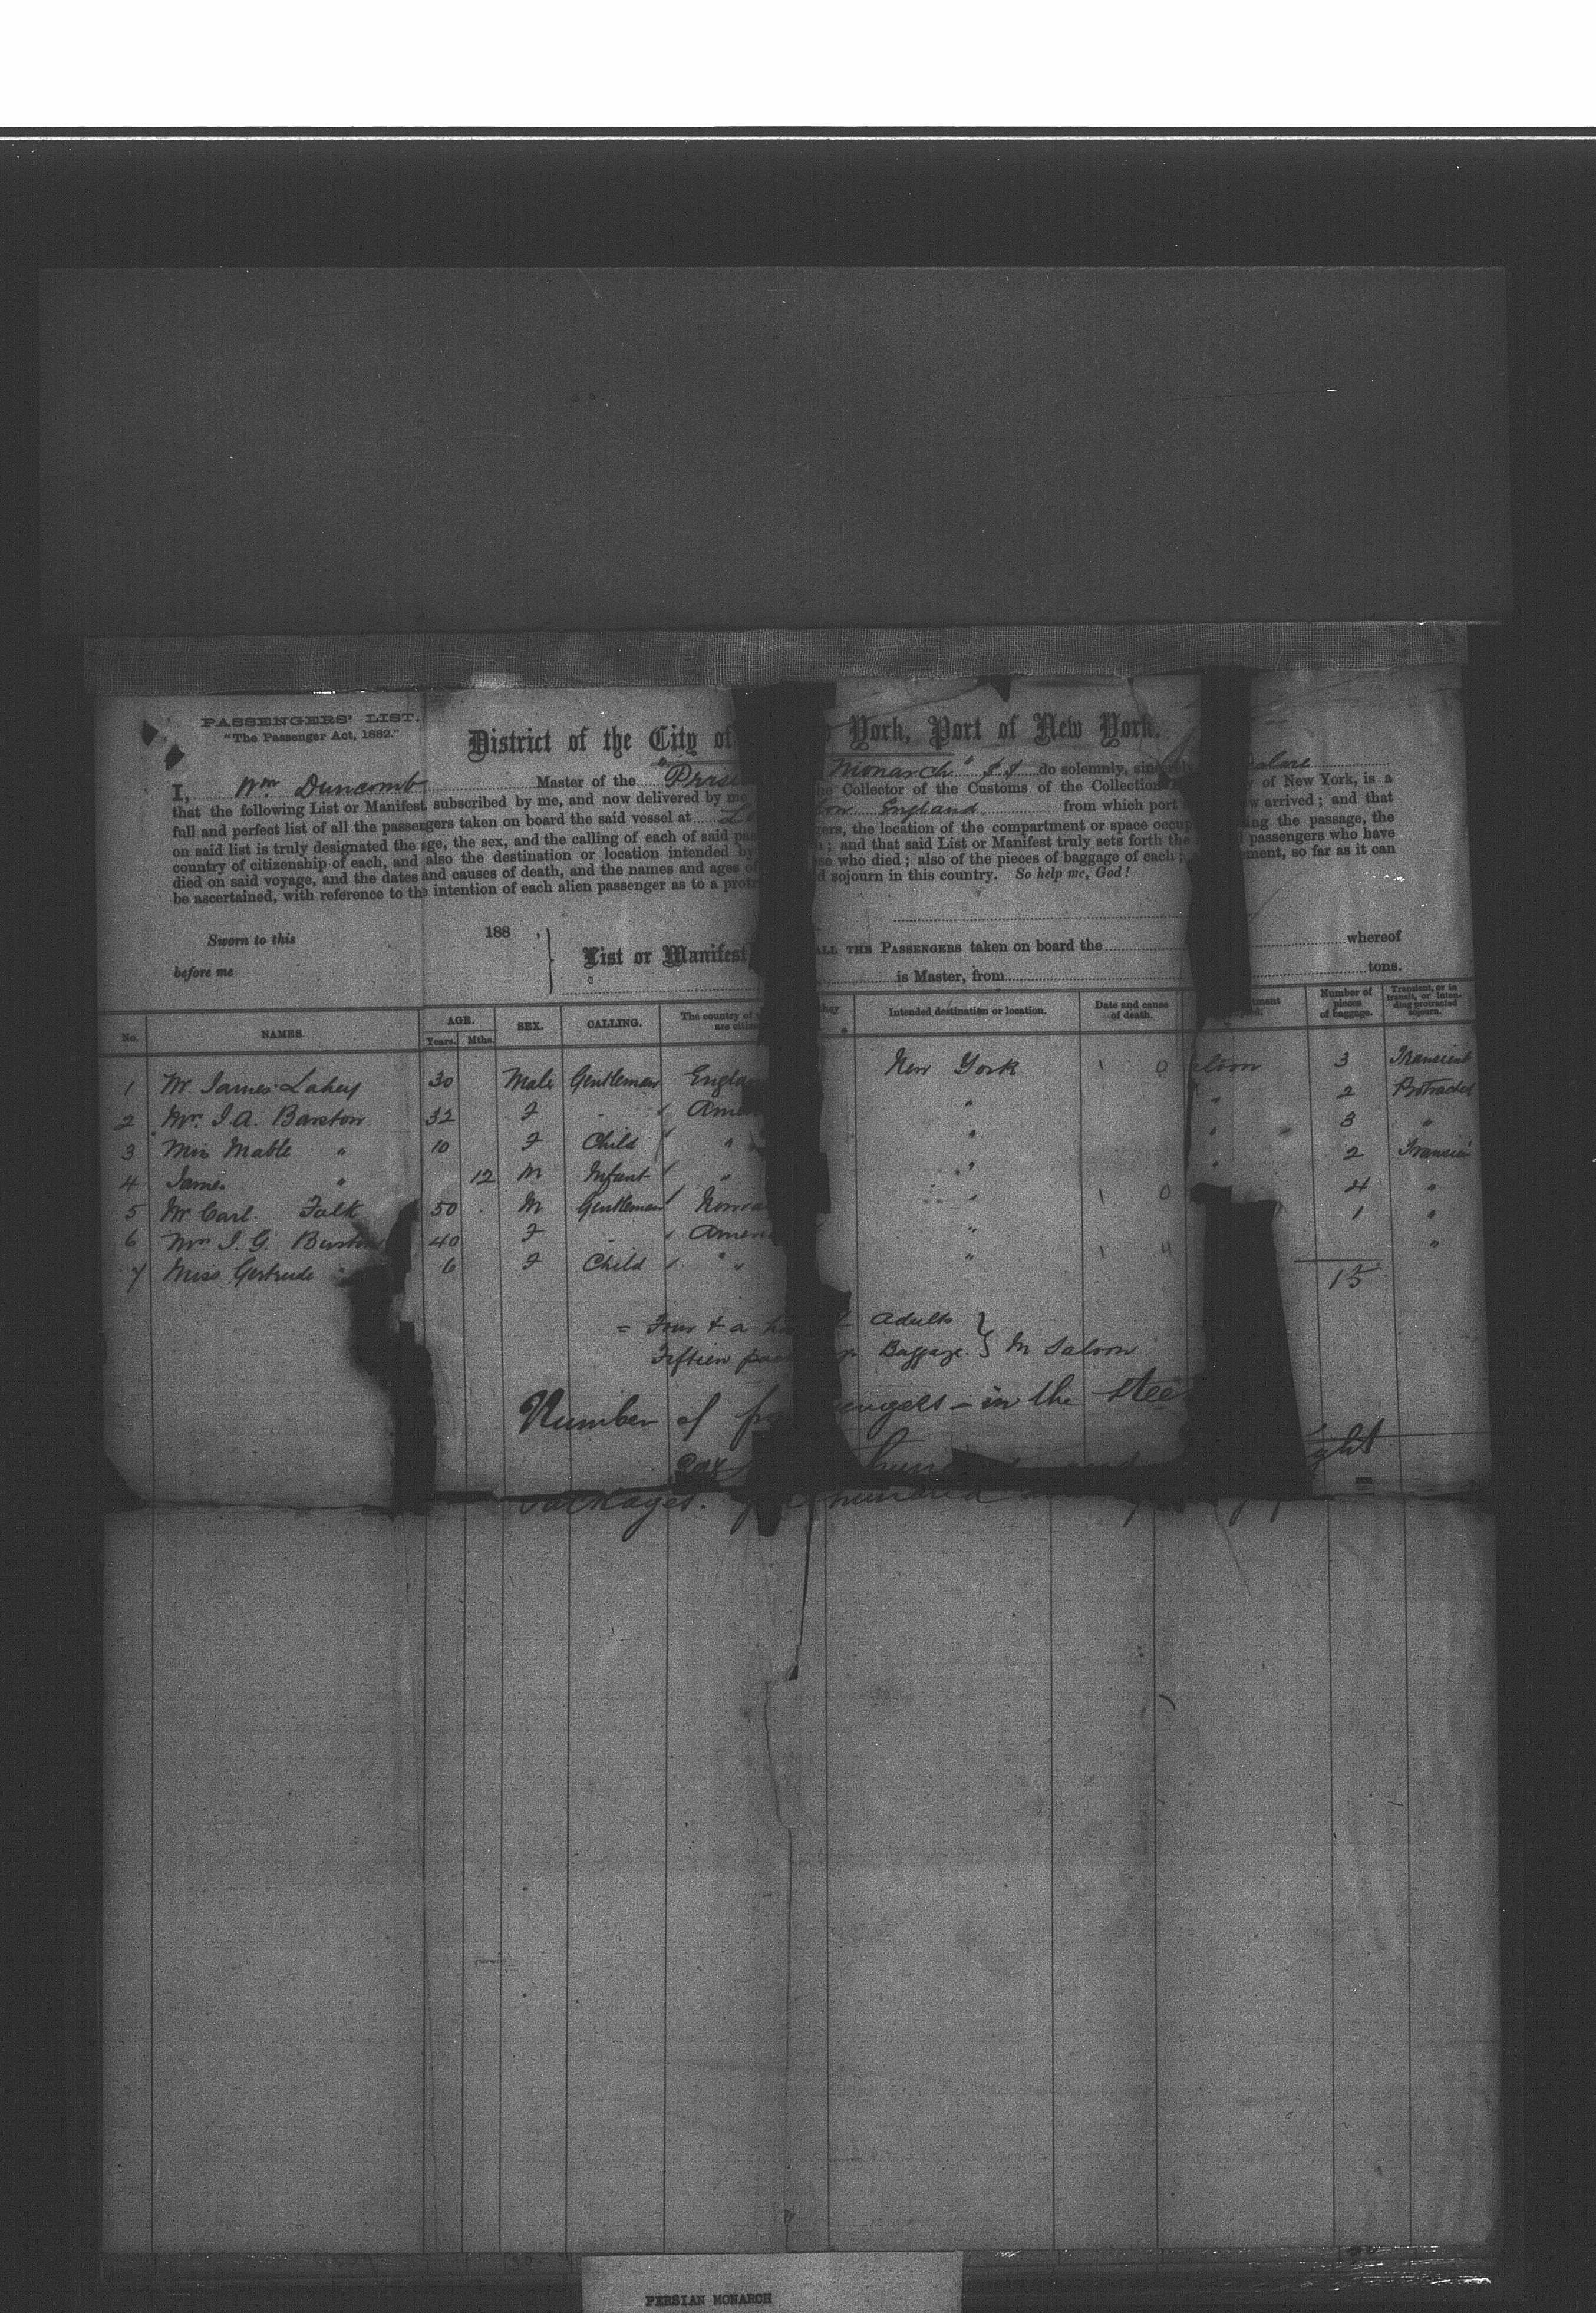 PASSENGERS' LIST.
"The Passenger Act, 1882."
District of the City of York, Port of New York.
I, Wm Duncomb Master of the "Persi Monarch" SS do solemnly, sincerely
that the following List or Manifest, subscribed by me, and now delivered by me he Collector of the Customs of the Collection y of New York, is a
full and perfect list of all the passengers taken on board the said vessel at Lo England from which port w arrived; and that
on said list is truly designated the age, the sex, and the calling of each of said pas gers, the location of the compartment or space occup ing the passage, the
country of citizenship of each, and also the destination or location intended by h; and that said List or Manifest truly sets forth the passengers who have
died on said voyage, and the dates and causes of death, and the names and ages of se who died; also of the pieces of baggage of each; ment, so far as it can
be ascertained, with reference to the intention of each alien passenger as to a protr d sojourn in this country. So help me, God!
Sworn to this 188 ,
before me
List or Manifest ALL THE PASSENGERS taken on board the whereof
is Master, from tons.
No. NAMES. AGE. Years. Mths. SEX. CALLING. The country of are citize they Intended destination or location. Date and cause of death. tment Number of pieces of baggage. Transient, or in transit, or intending protracted sojourn.
1 Mr James Lahey 30 Male Gentleman Engla New York loon 3 Transient
2 Mrs J A. Barstow 32 F " Amer " " 2 Protracted
3 Miss Mable " 10 F Child " " " 3 "
4 James " 12 M Infant " " " 2 Transien
5 Mr Carl Falk 50 M Gentleman Norwa " 4 "
6 Mrs J. G. Burto 40 F Ameri " 1 "
7 Miss Gertrude " 6 F Child " " "
15
= Four & a h Adults
Fifteen pac Baggage. } In Saloon
Number of engers - in the stee
hun ght
Packages. hundred
PERSIAN MONARCH